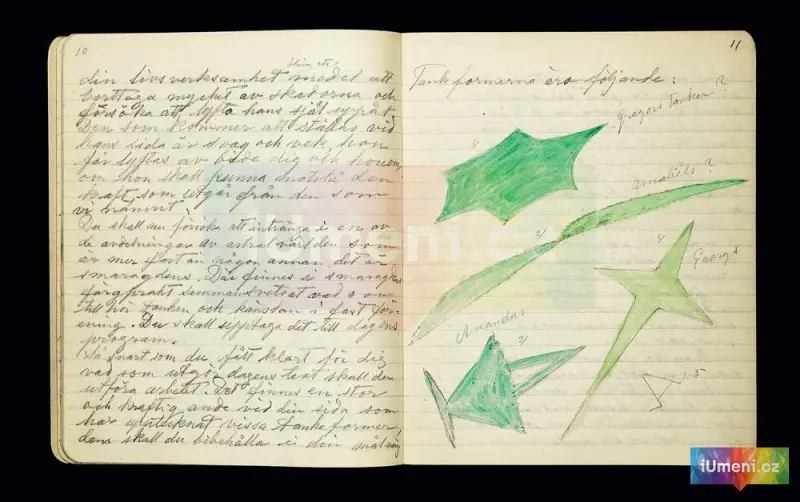 10
blива etc.
din livsverksamhet medel att
borttaga mycket av skadorna och
försöka att lyfta hans själ uppåt.
Den som kommer att ställas vid
hans sida är svag och vek, hon
får lyftas av både dig och honom
om hon skall kunna motstå den
kraft som utgår från den som
vi nämnt.
Du skall nu försöka att intränga i en av
de avdelningar av astralvärlden som
är mer fast än någon annan det är
smaragdens. Där finnes i smaragdens
färgprakt sammansvetsat vad som
till hör tanken och känslan i fast för-
ening. Du skall upptaga det till dagens
program.
Så snart som du fått klart för dig
vad som utgör dagens text skall du
utföra arbetet. Det finnes en stor
och kraftig ande vid din sida som
har uttänkt vissa tankeformer,
dem skall du bibehålla i din målning
11
Tankeformerna äro följande:
Gregors tanker ?
Amaliels ?
Georgs
Anandas
5
iUmeni.cz
iUmeni.cz